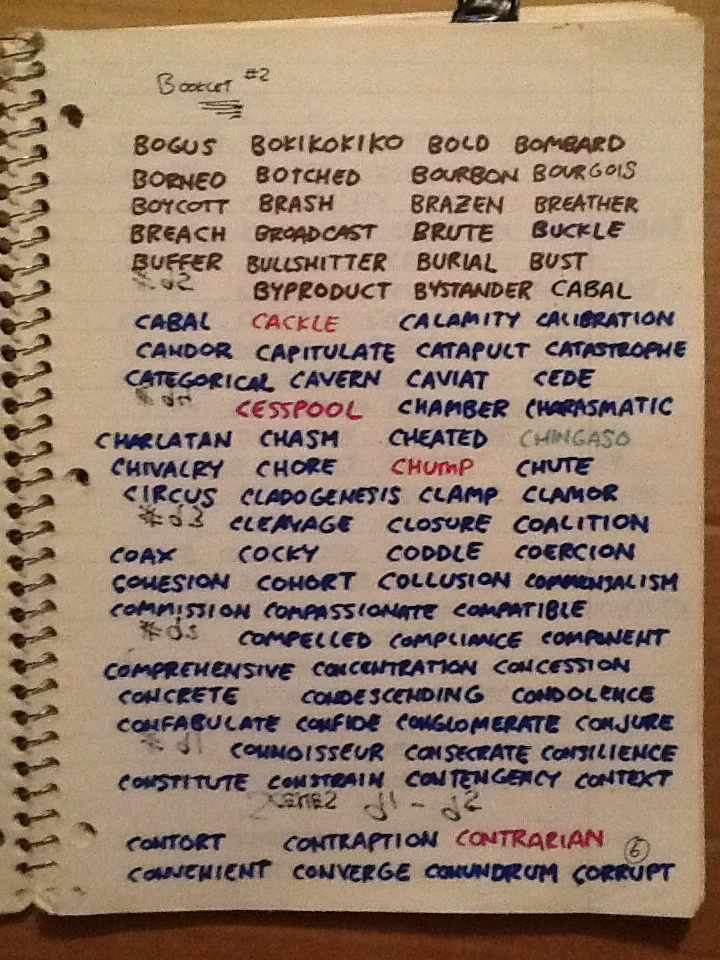 Booklet #2
BOGUS BOKIKOKIKO BOLD BOMBARD
BORNEO BOTCHED BOURBON BOURGOIS
BOYCOTT BRASH BRAZEN BREATHER
BREACH BROADCAST BRUTE BUCKLE
BUFFER BULLSHITTER BURIAL BUST
BYPRODUCT BYSTANDER CABAL
CABAL CACKLE CALAMITY CALIBRATION
CANDOR CAPITULATE CATAPULT CATASTROPHE
CATEGORICAL CAVERN CAVIAT CEDE
CESSPOOL CHAMBER CHARASMATIC
CHARLATAN CHASM CHEATED CHINGASO
CHIVALRY CHORE CHUMP CHUTE
CIRCUS CLADOGENESIS CLAMP CLAMOR
* d3 CLEAVAGE CLOSURE COALITION
COAX COCKY CODDLE COERCION
COHESION COHORT COLLUSION COMMENSALISM
COMMISSION COMPASSIONATE COMPATIBLE
COMPELLED COMPLIANCE COMPONENT
COMPREHENSIVE CONCENTRATION CONCESSION
CONCRETE CONDESCENDING CONDOLENCE
CONFABULATE CONFIDE CONGLOMERATE CONJURE
* d1 CONNOISSEUR CONSECRATE CONSILIENCE
CONSTITUTE CONSTRAIN CONTENGENCY CONTEXT
d1 - d2
CONTORT CONTRAPTION CONTRARIAN 6
CONVENIENT CONVERGE CONUNDRUM CORRUPT